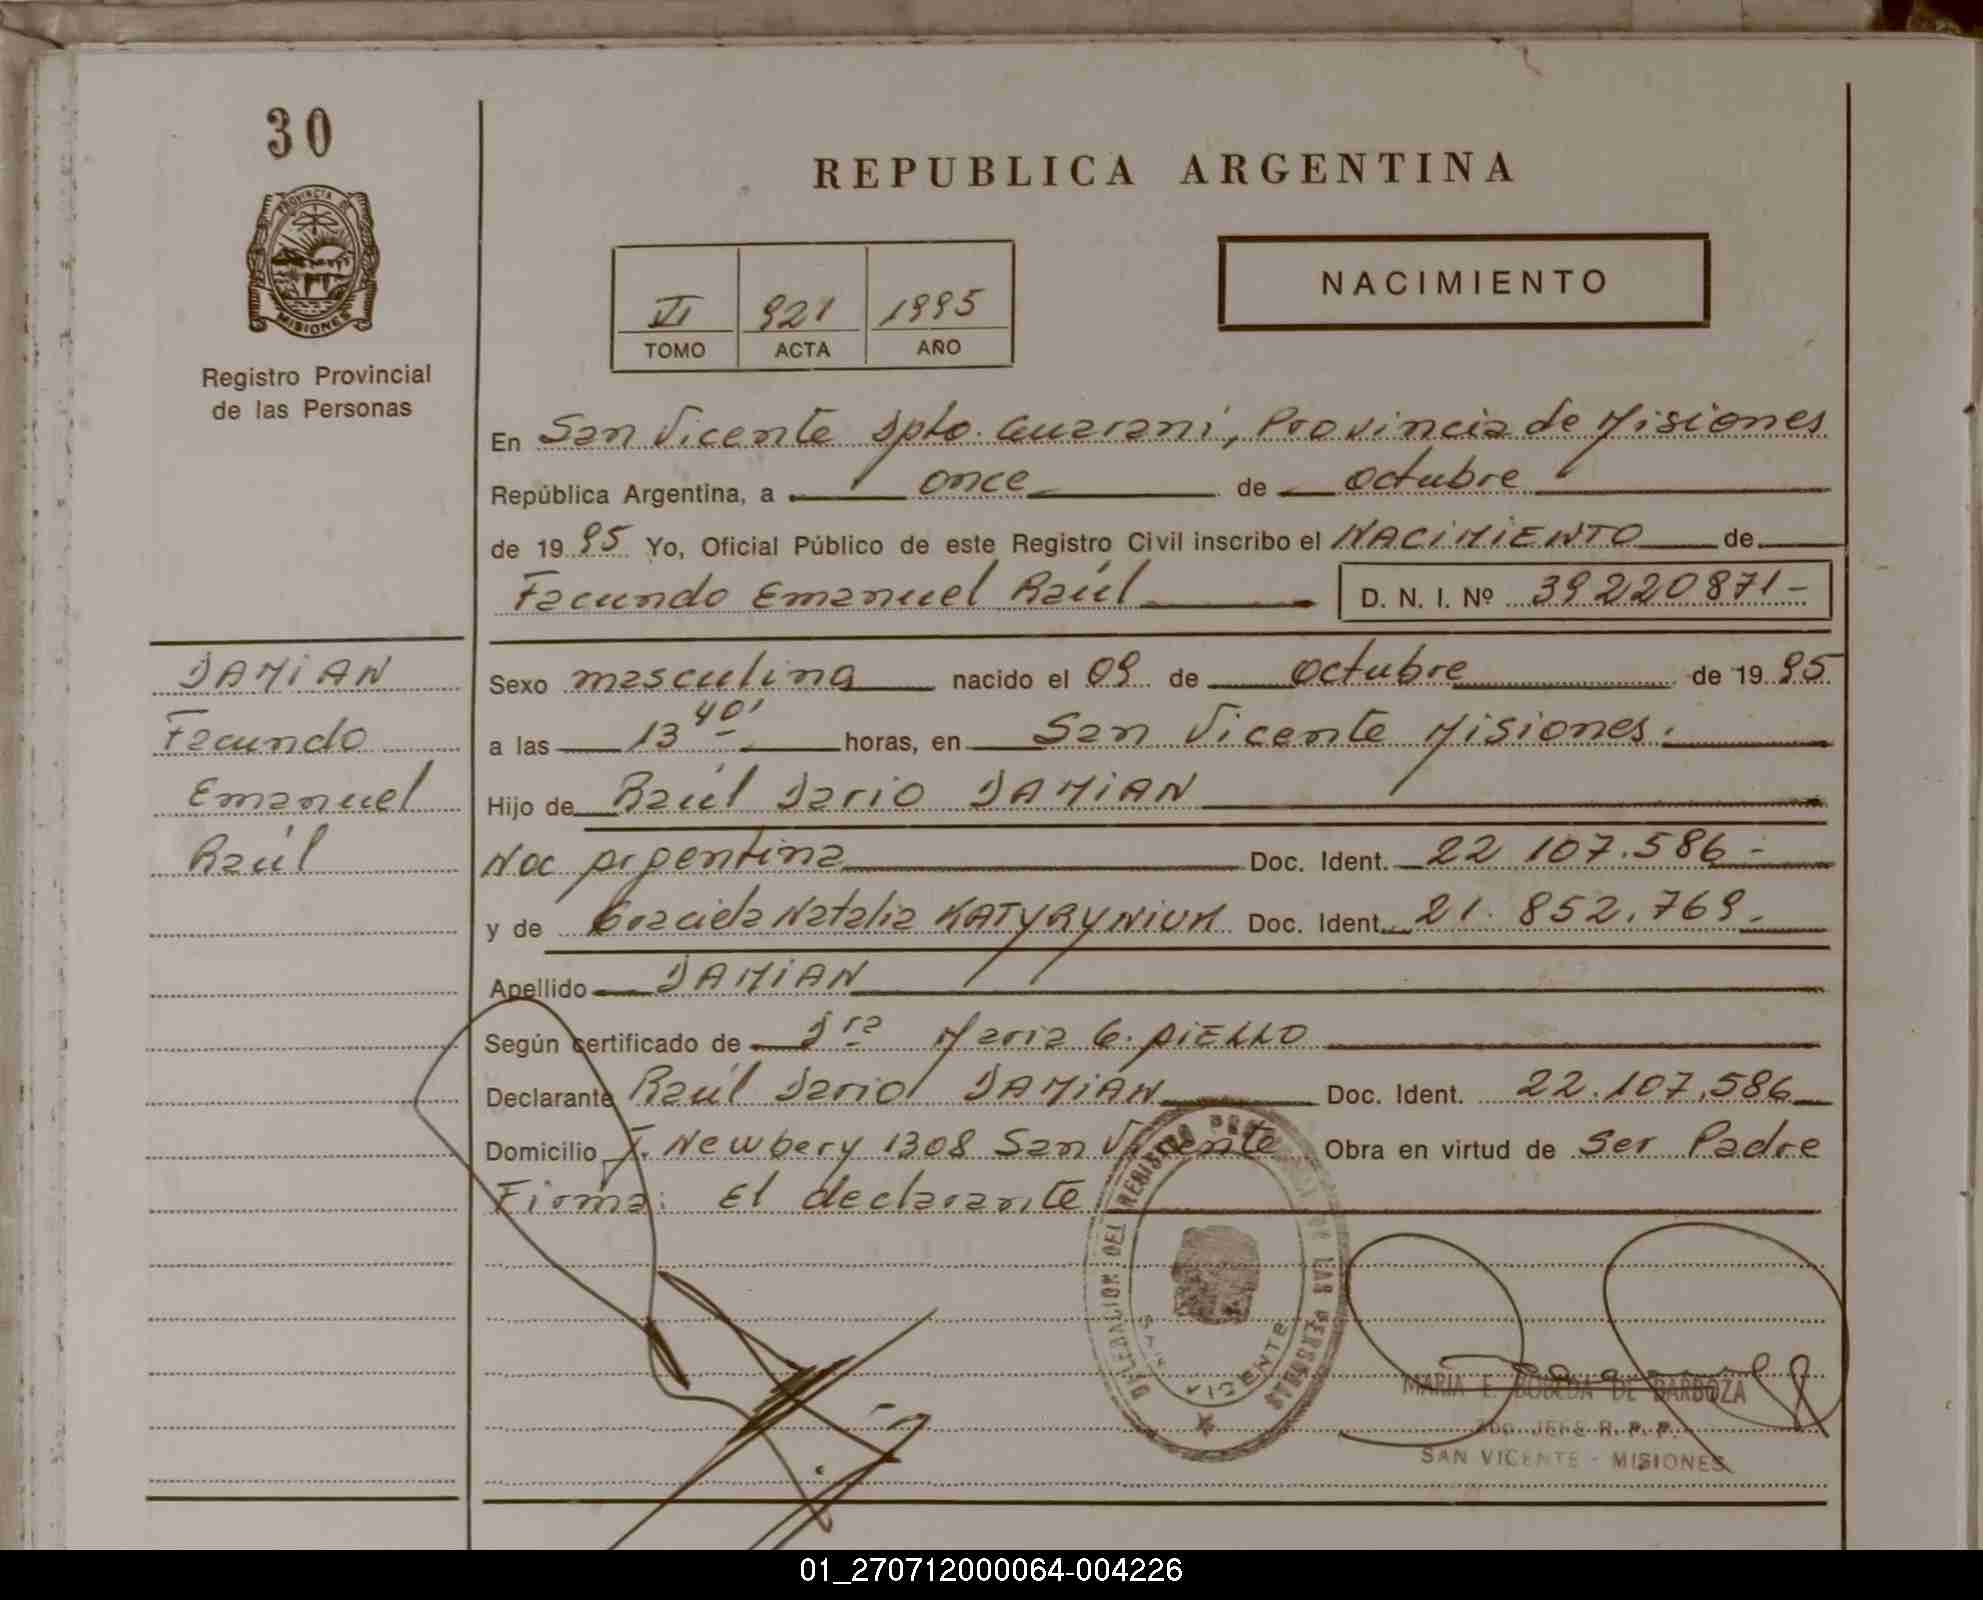 30
REPUBLICA ARGENTINA
PROVINCIA DE
MISIONES
NACIMIENTO
VI 921 1995
TOMO ACTA AÑO
Registro Provincial
de las Personas
En San Vicente Dpto. Guarani, Provincia de Misiones
República Argentina, a once de octubre
de 19 95 Yo, Oficial Público de este Registro Civil inscribo el NACIMIENTO de
Facundo Emanuel Raúl D. N. I. Nº 39220871-
DAMIAN
Facundo
Emanuel
Raúl
Sexo masculino nacido el 09 de octubre de 19 95
a las 13 40' horas, en San Vicente Misiones.
Hijo de Raúl Dario DAMIAN
Nac argentina Doc. Ident. 22 107.586-
y de Graciela Natalia KATYRYNIUK Doc. Ident. 21.852.769-
Apellido DAMIAN
Según certificado de Dra Maria G. AIELLO
Declarante Raúl Dario DAMIAN Doc. Ident. 22.107.586
Domicilio J. Newbery 1308 San Vicente Obra en virtud de Ser Padre
Firma: El declarante
DELEGACION DEL REGISTRO PROVINCIAL DE LAS PERSONAS
SAN VICENTE
MARIA E. BOBEDA DE BARBOZA
2do. JEFE R. P. P.
SAN VICENTE - MISIONES
01_270712000064-004226